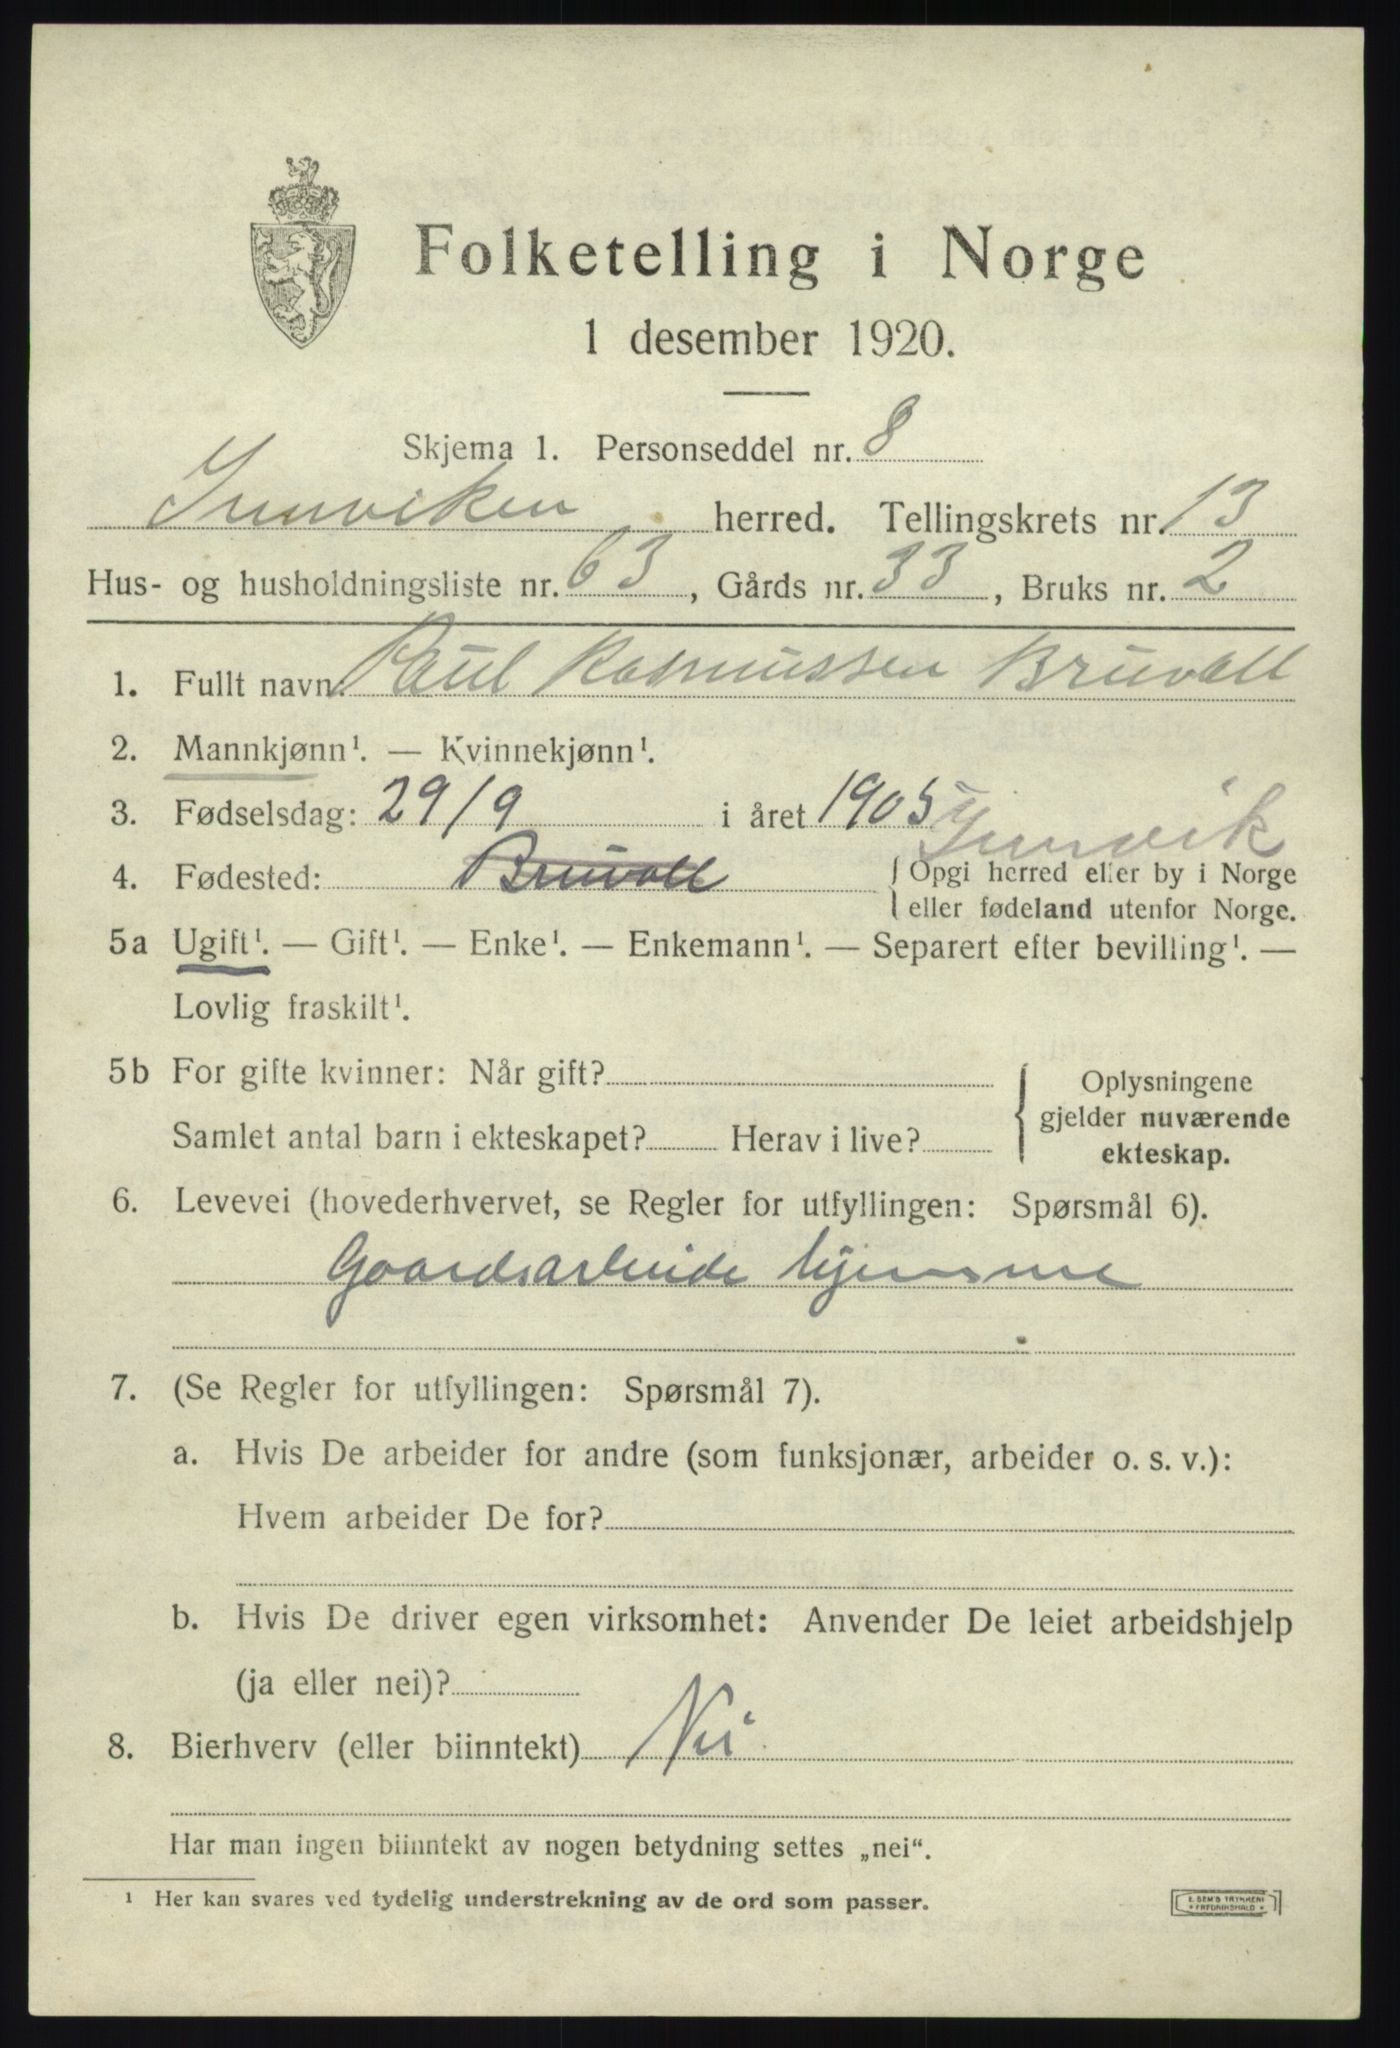 Folketelling i Norge
1 desember 1920.
Skjema 1. Personseddel nr. 8
Innviken herred. Tellingskrets nr. 13
Hus- og husholdningsliste nr. 63, Gårds nr. 33, Bruks nr. 2
1. Fullt navn Paul Rasmussen Bruvoll
2. Mannkjønn¹. — Kvinnekjønn¹.
3. Fødselsdag: 29/9 i året 1905
Innvik
4. Fødested: Bruvoll { Opgi herred eller by i Norge
eller fødeland utenfor Norge.
5a Ugift¹. — Gift¹. — Enke¹. — Enkemann¹. — Separert efter bevilling¹. —
Lovlig fraskilt¹.
5b For gifte kvinner: Når gift?
Samlet antal barn i ekteskapet? Herav i live?
{ Oplysningene
gjelder nuværende
ekteskap.
6. Levevei (hovederhvervet, se Regler for utfyllingen: Spørsmål 6).
Gaardsarbeide hjemme
7. (Se Regler for utfyllingen: Spørsmål 7).
a. Hvis De arbeider for andre (som funksjonær, arbeider o. s. v.):
Hvem arbeider De for?
b. Hvis De driver egen virksomhet: Anvender De leiet arbeidshjelp
(ja eller nei)?
8. Bierhverv (eller biinntekt) Nei
Har man ingen biinntekt av nogen betydning settes „nei“.
¹ Her kan svares ved tydelig understrekning av de ord som passer.
E. SEM'S TRYKKERI
FREDRIKSHALD